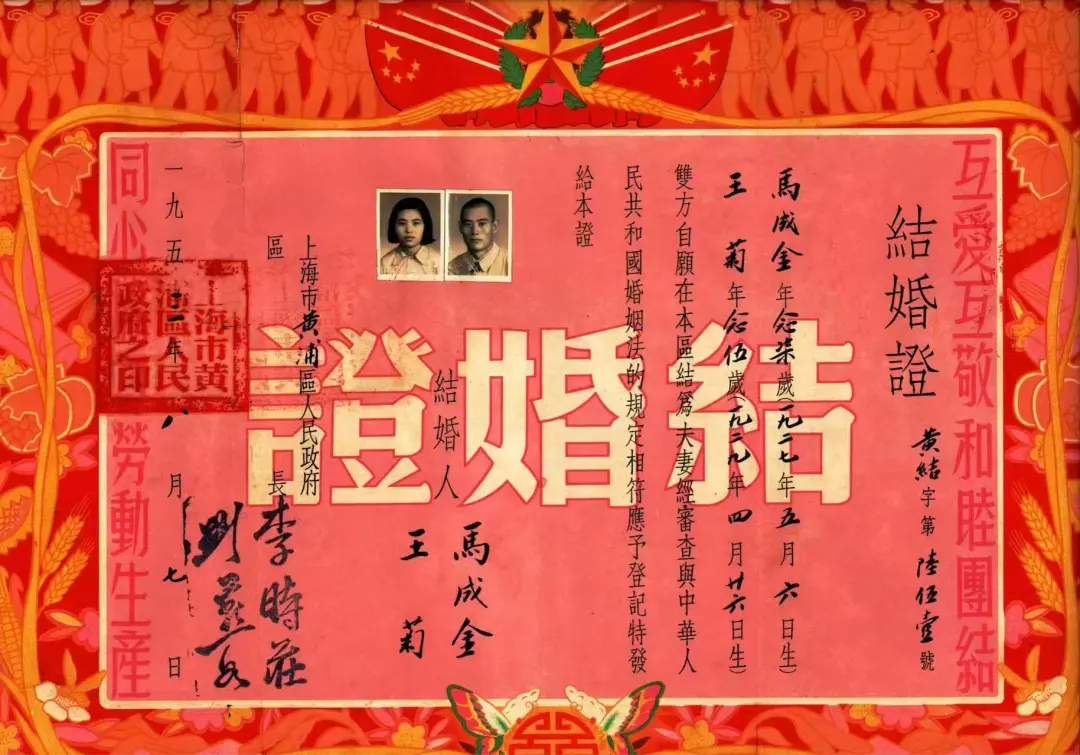 互愛互敬和睦團結
結婚證
黃結字第陸伍壹號
馬成金年念柒歲(一九二七年五月六日生)
王菊年念伍歲(一九二九年四月廿六日生)
雙方自願在本區結爲夫妻經審查與中華人
民共和國婚姻法的規定相符應予登記特發
給本證
結婚證
結婚人
馬成金
王菊
上海市黃浦區人民政府
區長李時莊
劉
一九五年八月七日
上海市黄
浦區人民
政府之印
同心勞動生產